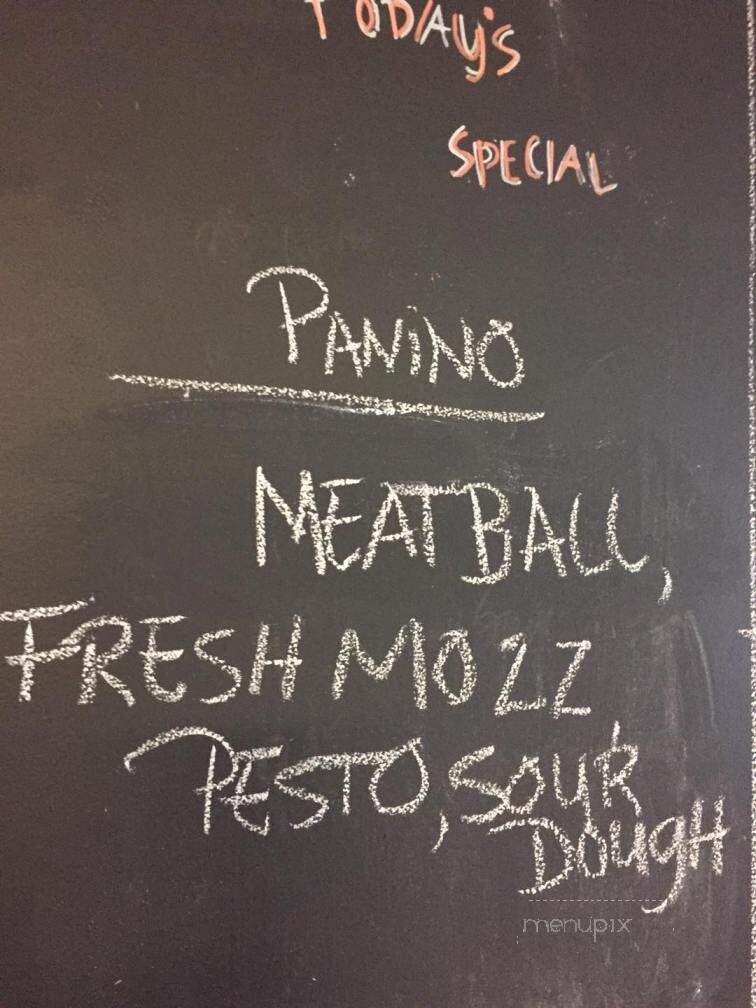 TODAY'S
SPECIAL
PANINO
MEATBALL,
FRESH MOZZ
PESTO, SOUR
DOUGH
menupix